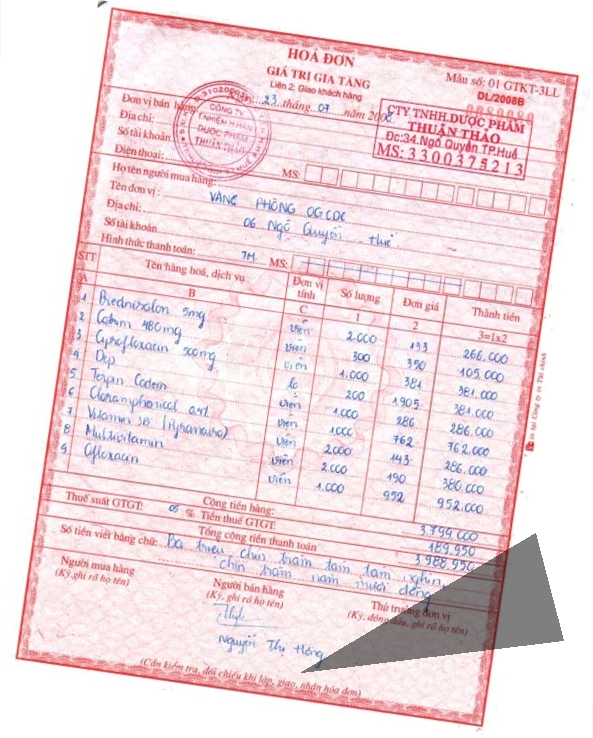 HOÁ ĐƠN
GIÁ TRỊ GIA TĂNG
Liên 2: Giao khách hàng
Mẫu số: 01 GTKT-3LL
DL/2008B
23 tháng 07 năm 2008
CÔNG TY
TNHIỆM H.HẠN
DƯỢC PHẨM
THUẬN THẢO
CTY TNHH.DƯỢC PHẨM
THUẬN THẢO
Đc:34.Ngô Quyền TP.Huế
MS: 3300375213
Đơn vị bán hàng
Địa chỉ:
Số tài khoản
Điện thoại: MS:
Họ tên người mua hàng:
Tên đơn vị: VĂNG PHÒNG OGCDC
Địa chỉ: 06 Ngô Quyền - Huế
Số tài khoản
Hình thức thanh toán: TM MS:
STT Tên hàng hoá, dịch vụ Đơn vị tính Số lượng Đơn giá Thành tiền
A B C 1 2 3=1x2
1 Prednisolon 5mg viên 2.000 133 266.000
2 Cotrim 480mg viên 300 350 105.000
3 Ciprofloxacin 500mg viên 1.000 381 381.000
4 Dep lọ 200 1.905 381.000
5 Terpin Codein viên 1.000 286 286.000
6 Cloramphenicol 0,4% viên 1.000 762 762.000
7 Vitamin 3B viên 2.000 143 286.000
8 Multivitamin viên 2.000 190 380.000
9 Ofloxacin viên 1.000 952 952.000
Cộng tiền hàng: 3.799.000
Thuế suất GTGT: 05 % Tiền thuế GTGT: 189.950
Tổng cộng tiền thanh toán 3.988.950
Số tiền viết bằng chữ: Ba triệu, chín trăm tám tám nghìn,
chín trăm năm mươi đồng
Người mua hàng Người bán hàng Thủ trưởng đơn vị
(Ký, ghi rõ họ tên) (Ký, ghi rõ họ tên) (Ký, đóng dấu, ghi rõ họ tên)
Nguyễn Thị Hồng
(Cần kiểm tra, đối chiếu khi lập, giao, nhận hóa đơn)